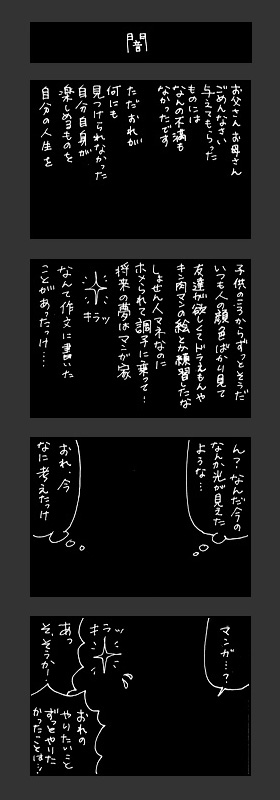 闇
お父さんお母さん
ごめんなさい
与えてもらった
ものには
なんの不満も
なかったです
ただおれが
何にも
見つけられなかった
自分自身が
楽しめるものを
自分の人生を
子供のころからずっとそうだ
いつも人の顔色ばかり見て
友達が欲しくてドラえもんや
キン肉マンの絵とか練習したな
しょせん人マネなのに
ホメられて調子に乗って…
将来の夢はマンガ家
キラッ
なんて作文に書いた
ことがあったっけ…
ん?なんだ今の
なんか光が見えた
ような…
おれ、今
なに考えたっけ
マンガ…?
キラッ
あっ
そ、そうか…
おれの
やりたいこと
ずっとやりた
かったことは…!